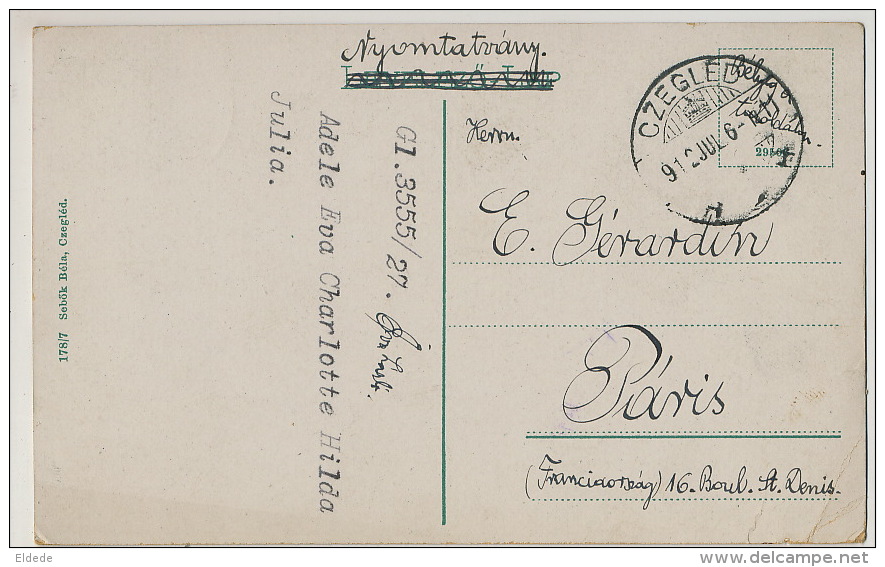 Nyomtatvány.
CZEGLÉD
912 JUL 6
Bélyeg a
túloldalon.
Herrn.
E. Gérardin
Páris
(Franciaország) 16. Boul. St. Denis.
Gl. 3555/27.
Adele Eva Charlotte Hilda
Julia.
178/7 Sebők Béla, Czegléd.
Eldede
delcampe.net